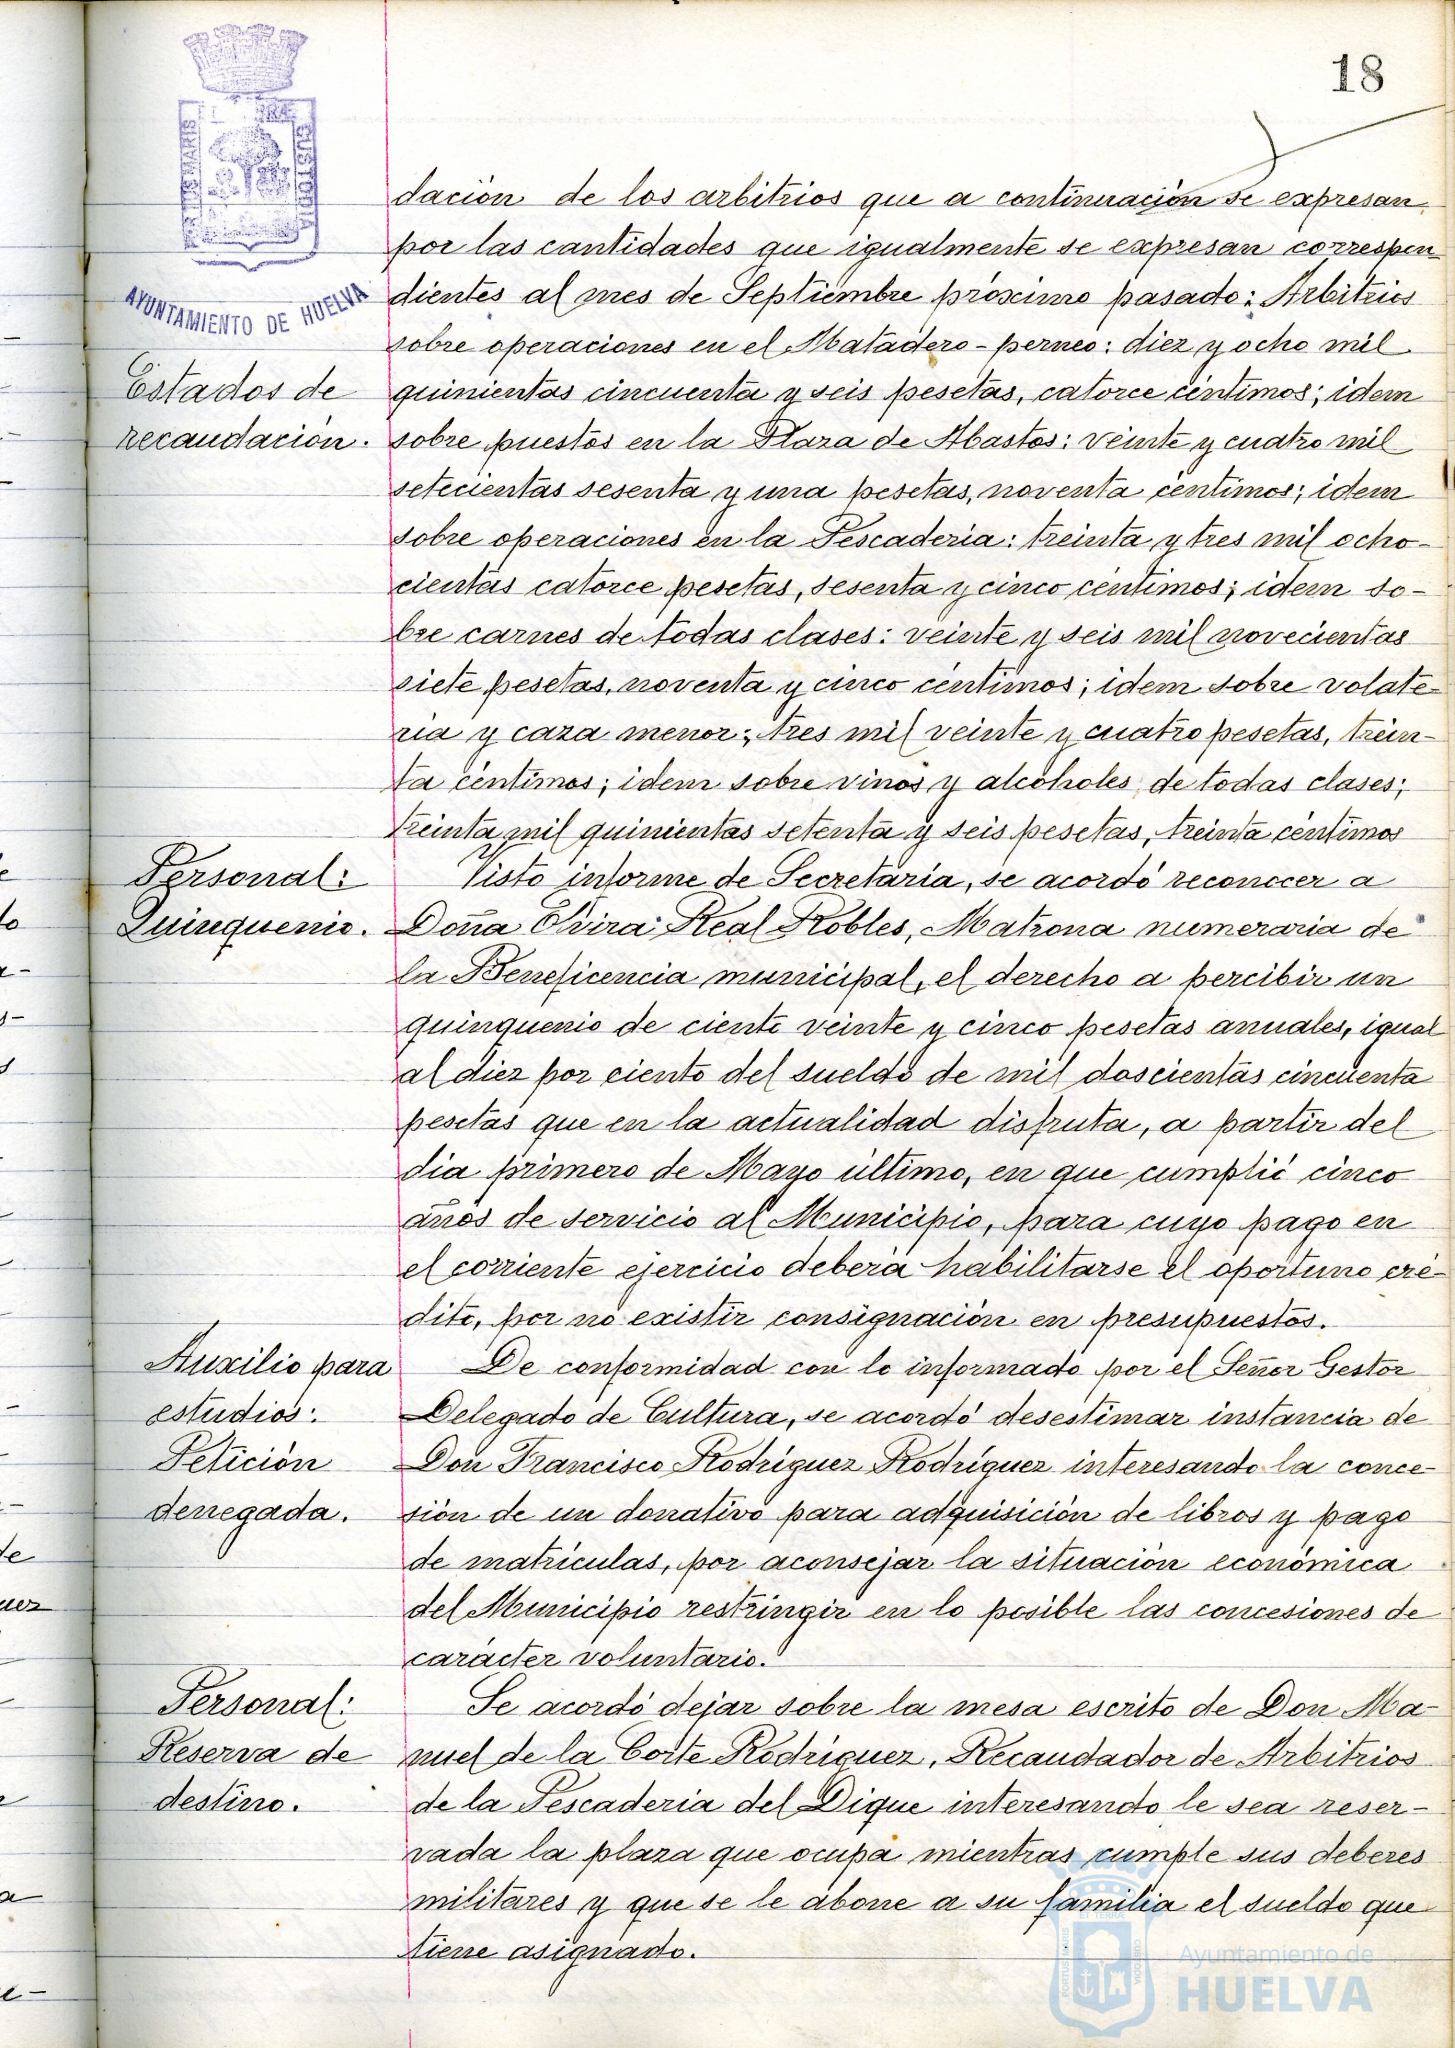 18
PORTUS MARIS ET TERRÆ CUSTODIA
AYUNTAMIENTO DE HUELVA
dación de los arbitrios que a continuación se expresan
por las cantidades que igualmente se expresan correspon
dientes al mes de Septiembre próximo pasado: Arbitrios
sobre operaciones en el Matadero-perneo: diez y ocho mil
Estados de
recaudación.
quinientas cincuenta y seis pesetas, catorce céntimos; idem
sobre puestos en la Plaza de Abastos: veinte y cuatro mil
setecientas sesenta y una pesetas, noventa céntimos; idem
sobre operaciones en la Pescaderia: treinta y tres mil ocho-
cientas catorce pesetas, sesenta y cinco céntimos; idem so-
bre carnes de todas clases: veinte y seis mil novecientas
siete pesetas, noventa y cinco céntimos; idem sobre volate-
ria y caza menor: tres mil veinte y cuatro pesetas, trein-
ta céntimos; idem sobre vinos y alcoholes de todas clases;
treinta mil quinientas setenta y seis pesetas, treinta céntimos
Personal:
Quinquenio.
Visto informe de Secretaria, se acordó reconocer a
Doña Elvira Real Robles, Matrona numeraria de
la Beneficencia municipal, el derecho a percibir un
quinquenio de ciento veinte y cinco pesetas anuales, igual
al diez por ciento del sueldo de mil doscientas cincuenta
pesetas que en la actualidad disfruta, a partir del
dia primero de Mayo último, en que cumplió cinco
años de servicio al Municipio, para cuyo pago en
el corriente ejercicio deberá habilitarse el oportuno cré-
dito, por no existir consignación en presupuestos.
Auxilio para
estudios:
Petición
denegada.
De conformidad con lo informado por el Señor Gestor
Delegado de Cultura, se acordó desestimar instancia de
Don Francisco Rodríguez Rodríguez interesando la conce-
sión de un donativo para adquisición de libros y pago
de matrículas, por aconsejar la situación económica
del Municipio restringir en lo posible las concesiones de
carácter voluntario.
Personal:
Reserva de
destino.
Se acordó dejar sobre la mesa escrito de Don Ma-
nuel de la Corte Rodríguez, Recaudador de Arbitrios
de la Pescaderia del Dique interesando le sea reser-
vada la plaza que ocupa mientras cumple sus deberes
militares y que se le abone a su familia el sueldo que
tiene asignado.
Ayuntamiento de
HUELVA